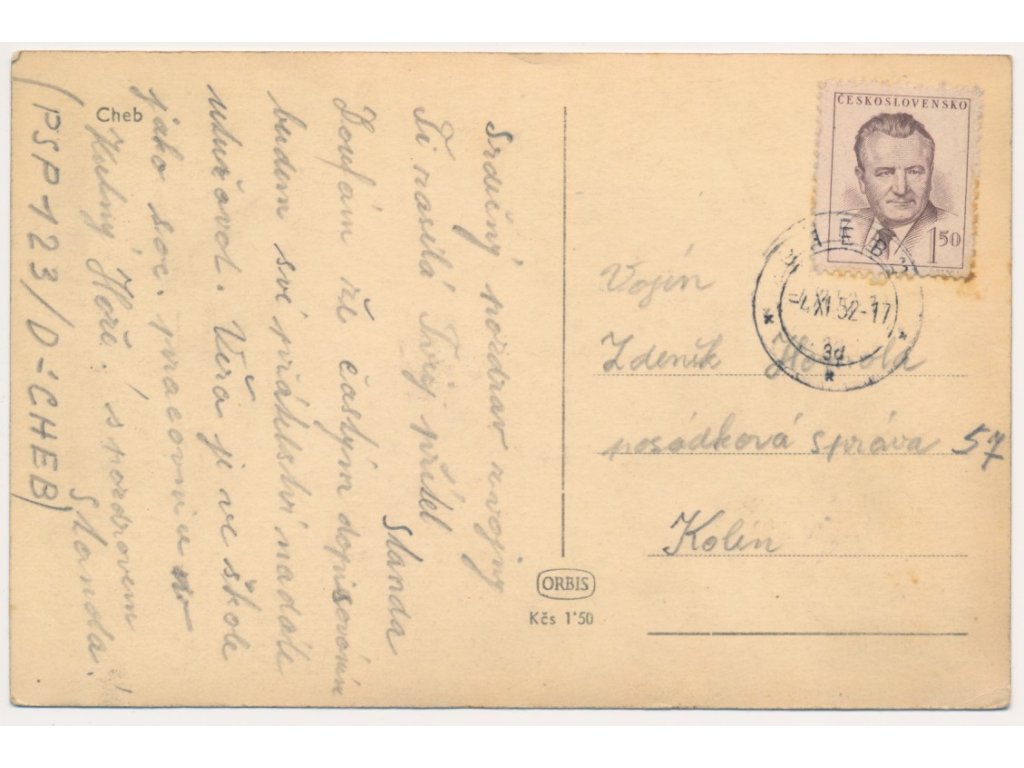 Cheb
Srdečný pozdrav z vojny
Ti zasílá Tvůj přítel
Standa
Doufám že častým dopisováním
budem své přátelství nadále
utužovat. Věra je ve škole
jako soc. pracovnice
Kutný Hoře! S pozdravem
Standa!
(PSP-123/D-CHEB)
ČESKOSLOVENSKO
1 50
CHEB
-4.XI.52-17
3d
Vojín
Zdeněk
posádková správa 57
Kolín
ORBIS
Kčs 1'50